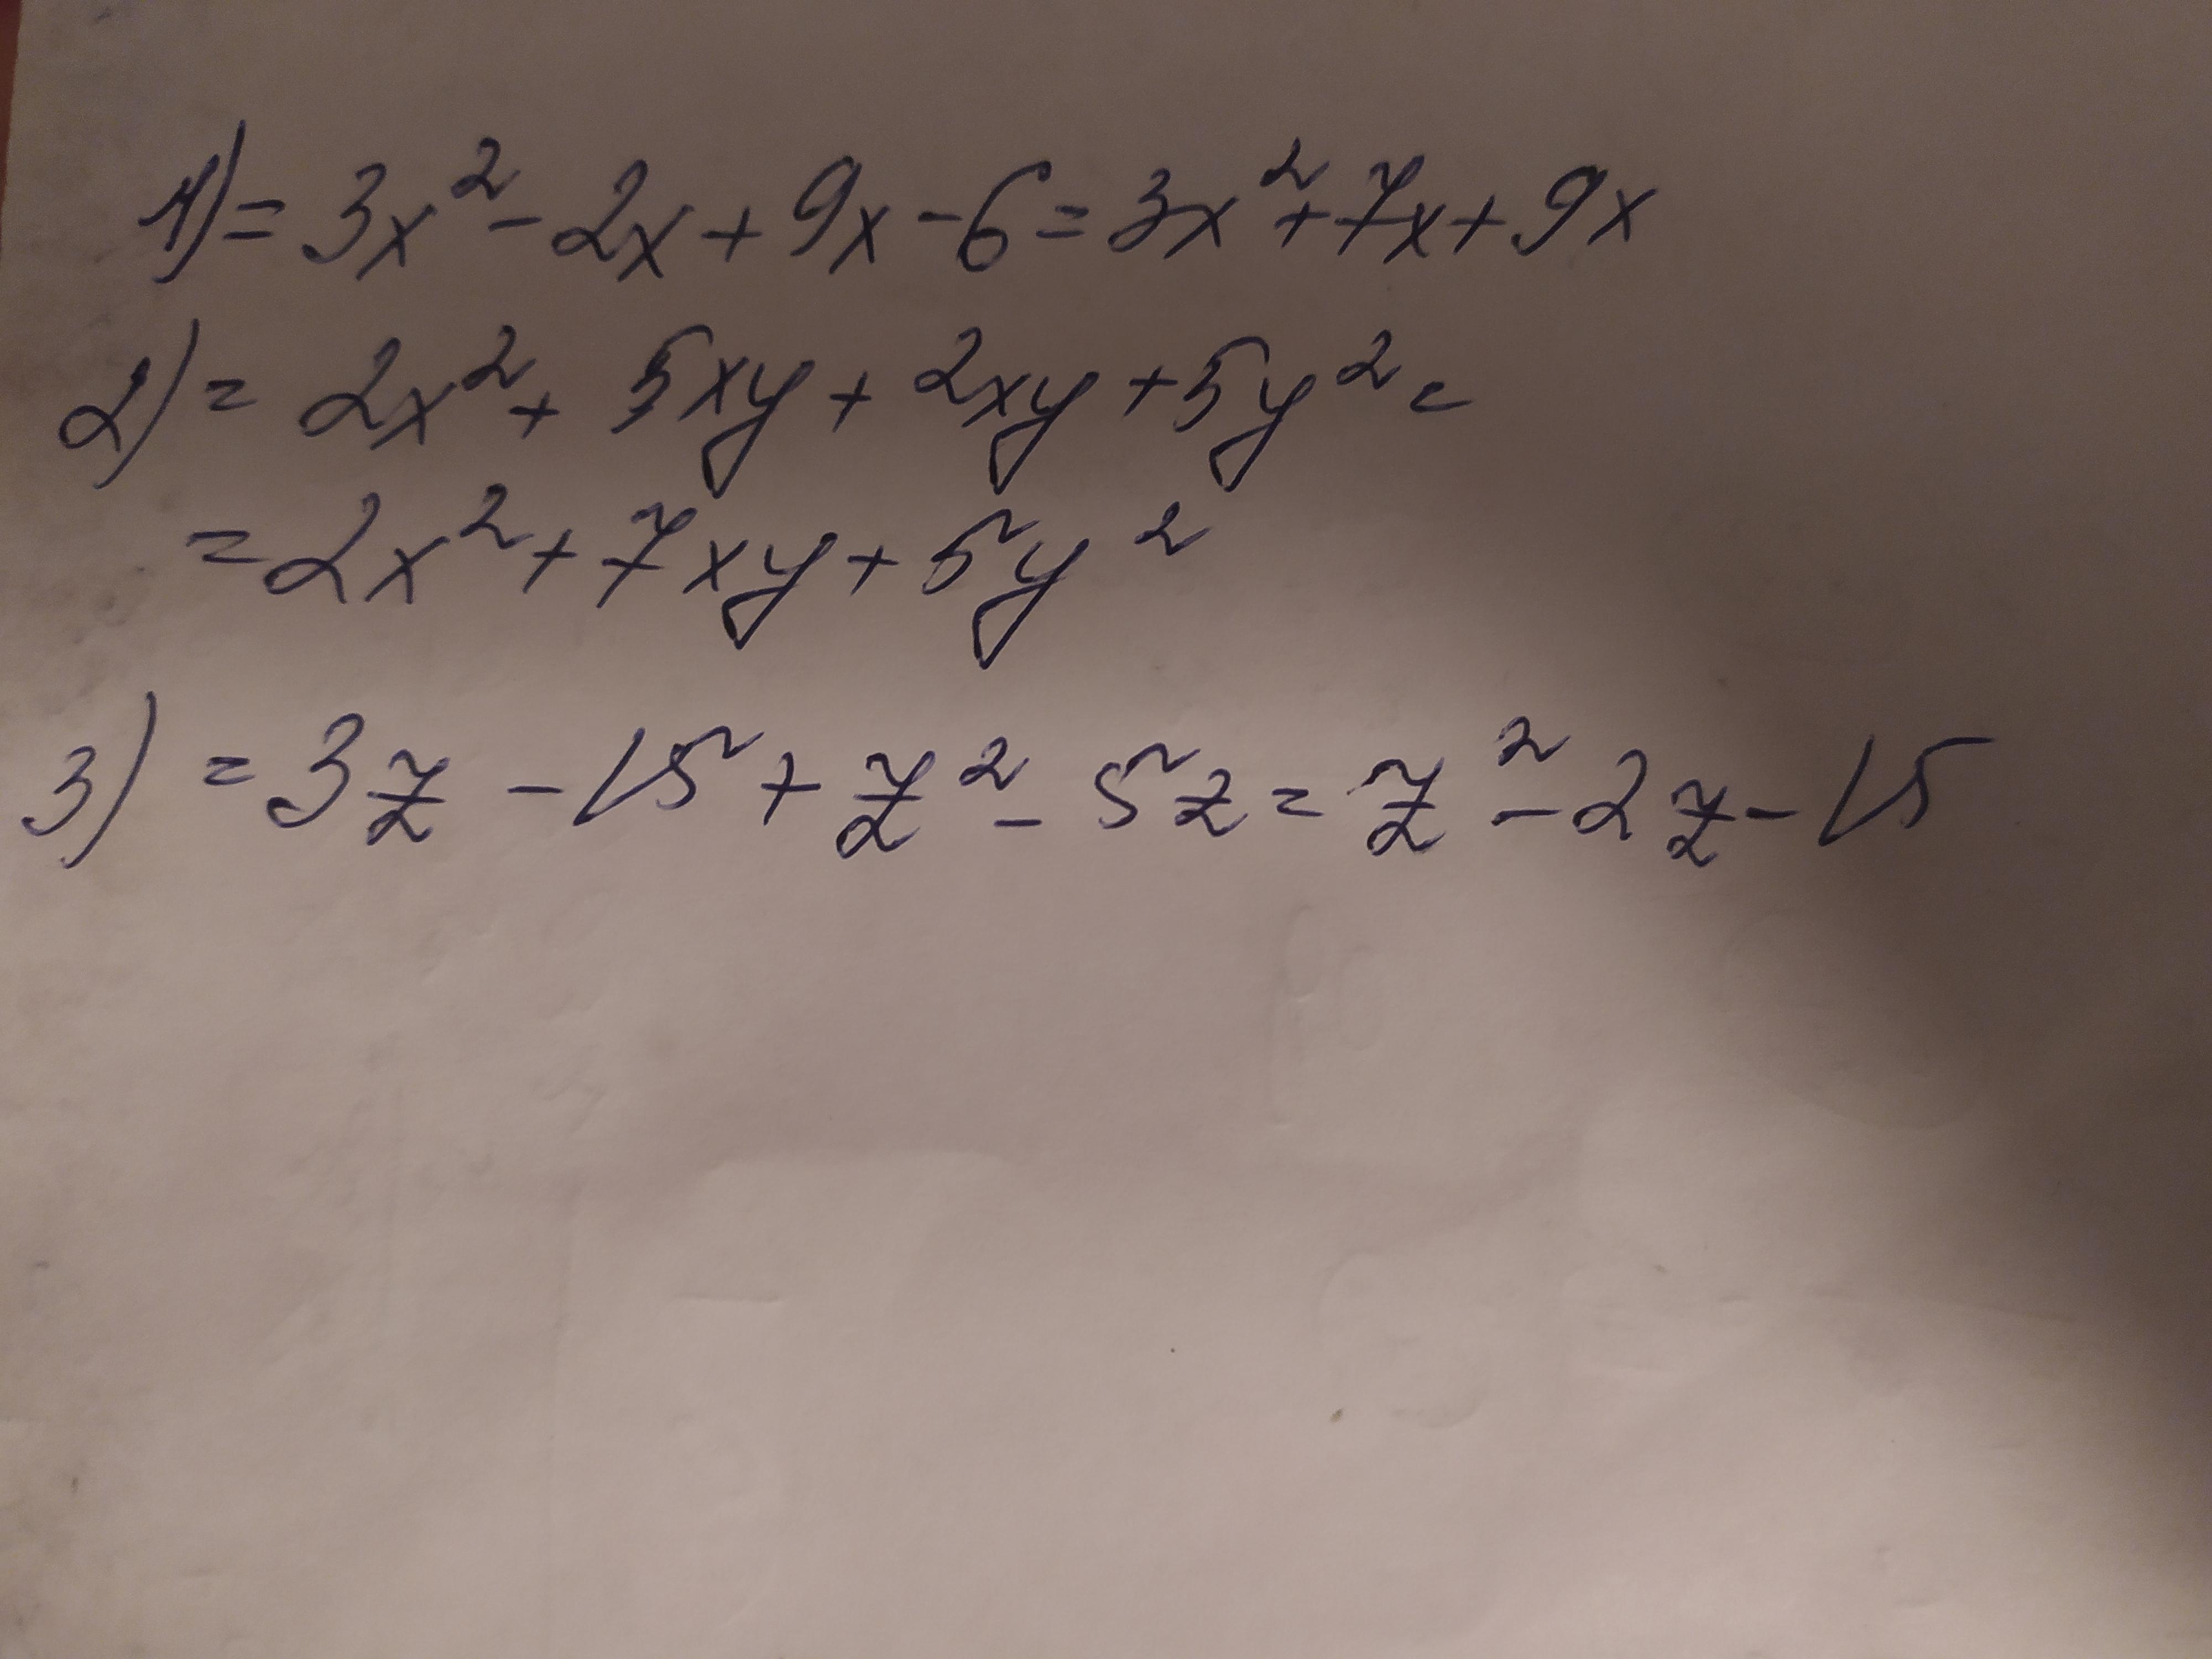 1) = 3x² - 2x + 9x - 6 = 3x² + 7x + 9x
2) = 2x² + 5xy + 2xy + 5y² =
= 2x² + 7xy + 5y²
3) = 3z - 15 + z² - 5z = z² - 2z - 15